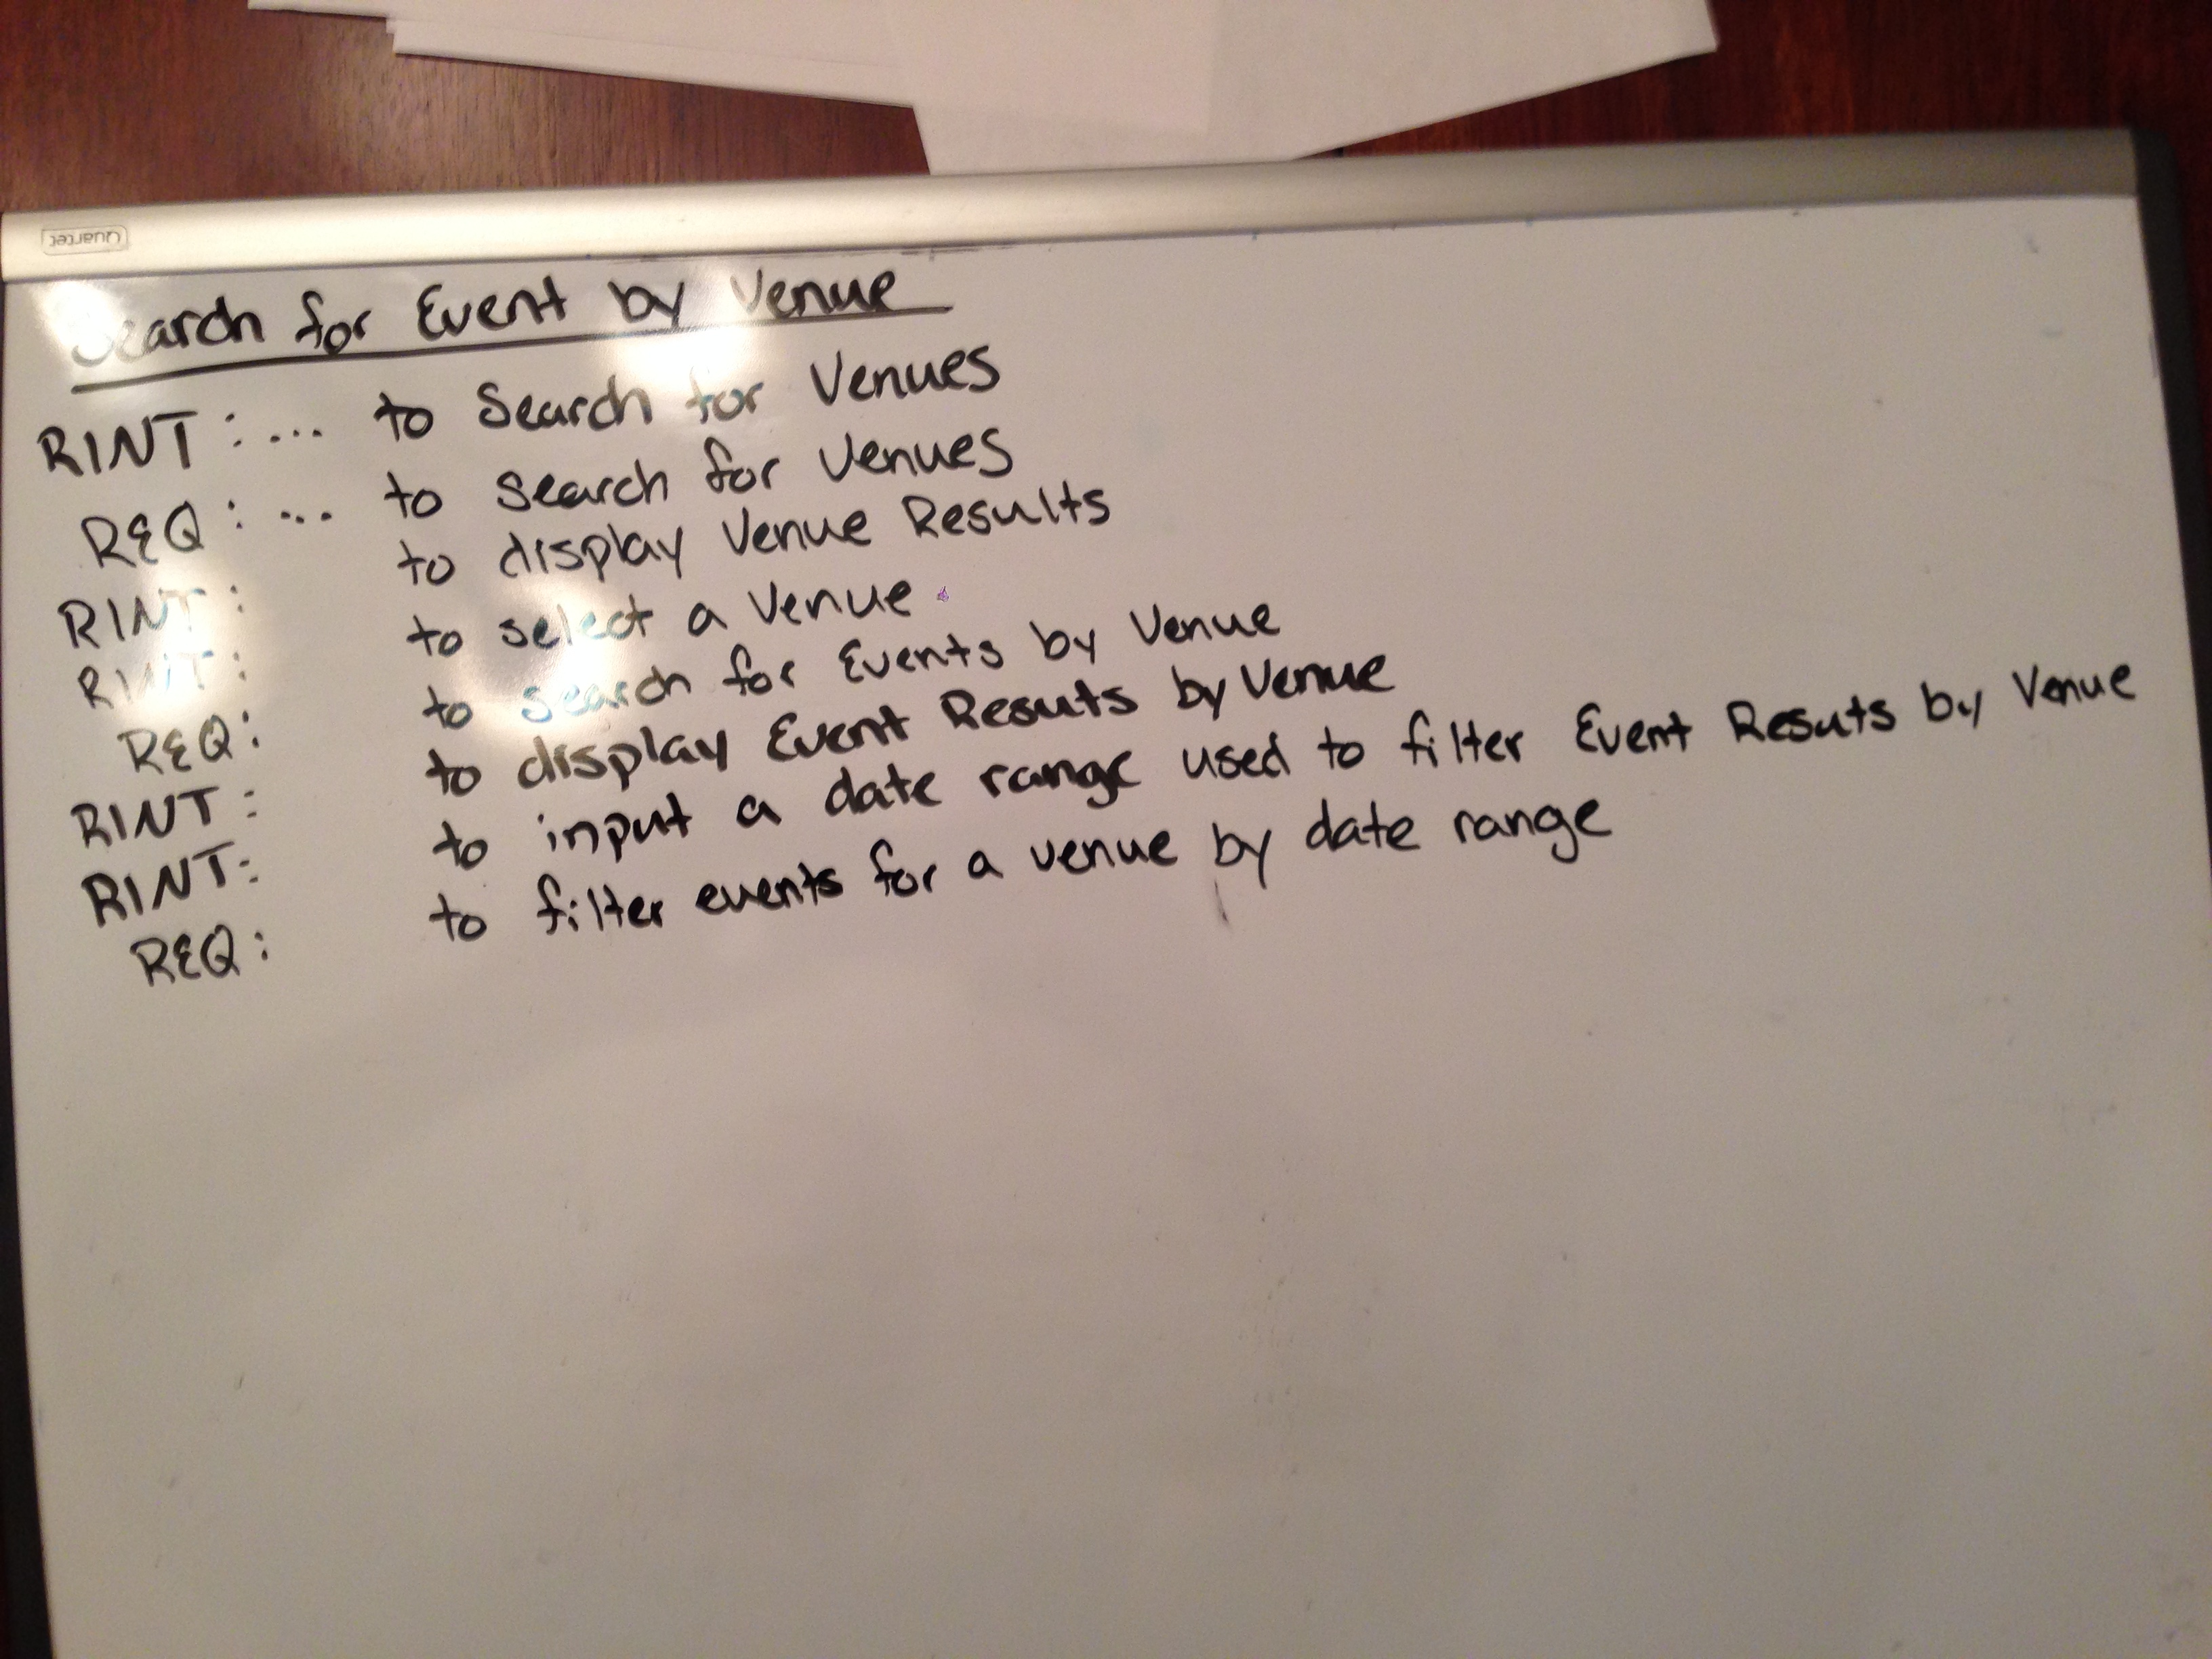 Quartet
Search for Event by Venue
RINT: ... to Search for Venues
REQ: ... to search for Venues
RINT: to display Venue Results
RINT: to select a Venue.
REQ: to search for Events by Venue
RINT: to display Event Resuts by Venue
RINT: to input a date range used to filter Event Resuts by Venue
REQ: to filter events for a venue by date range